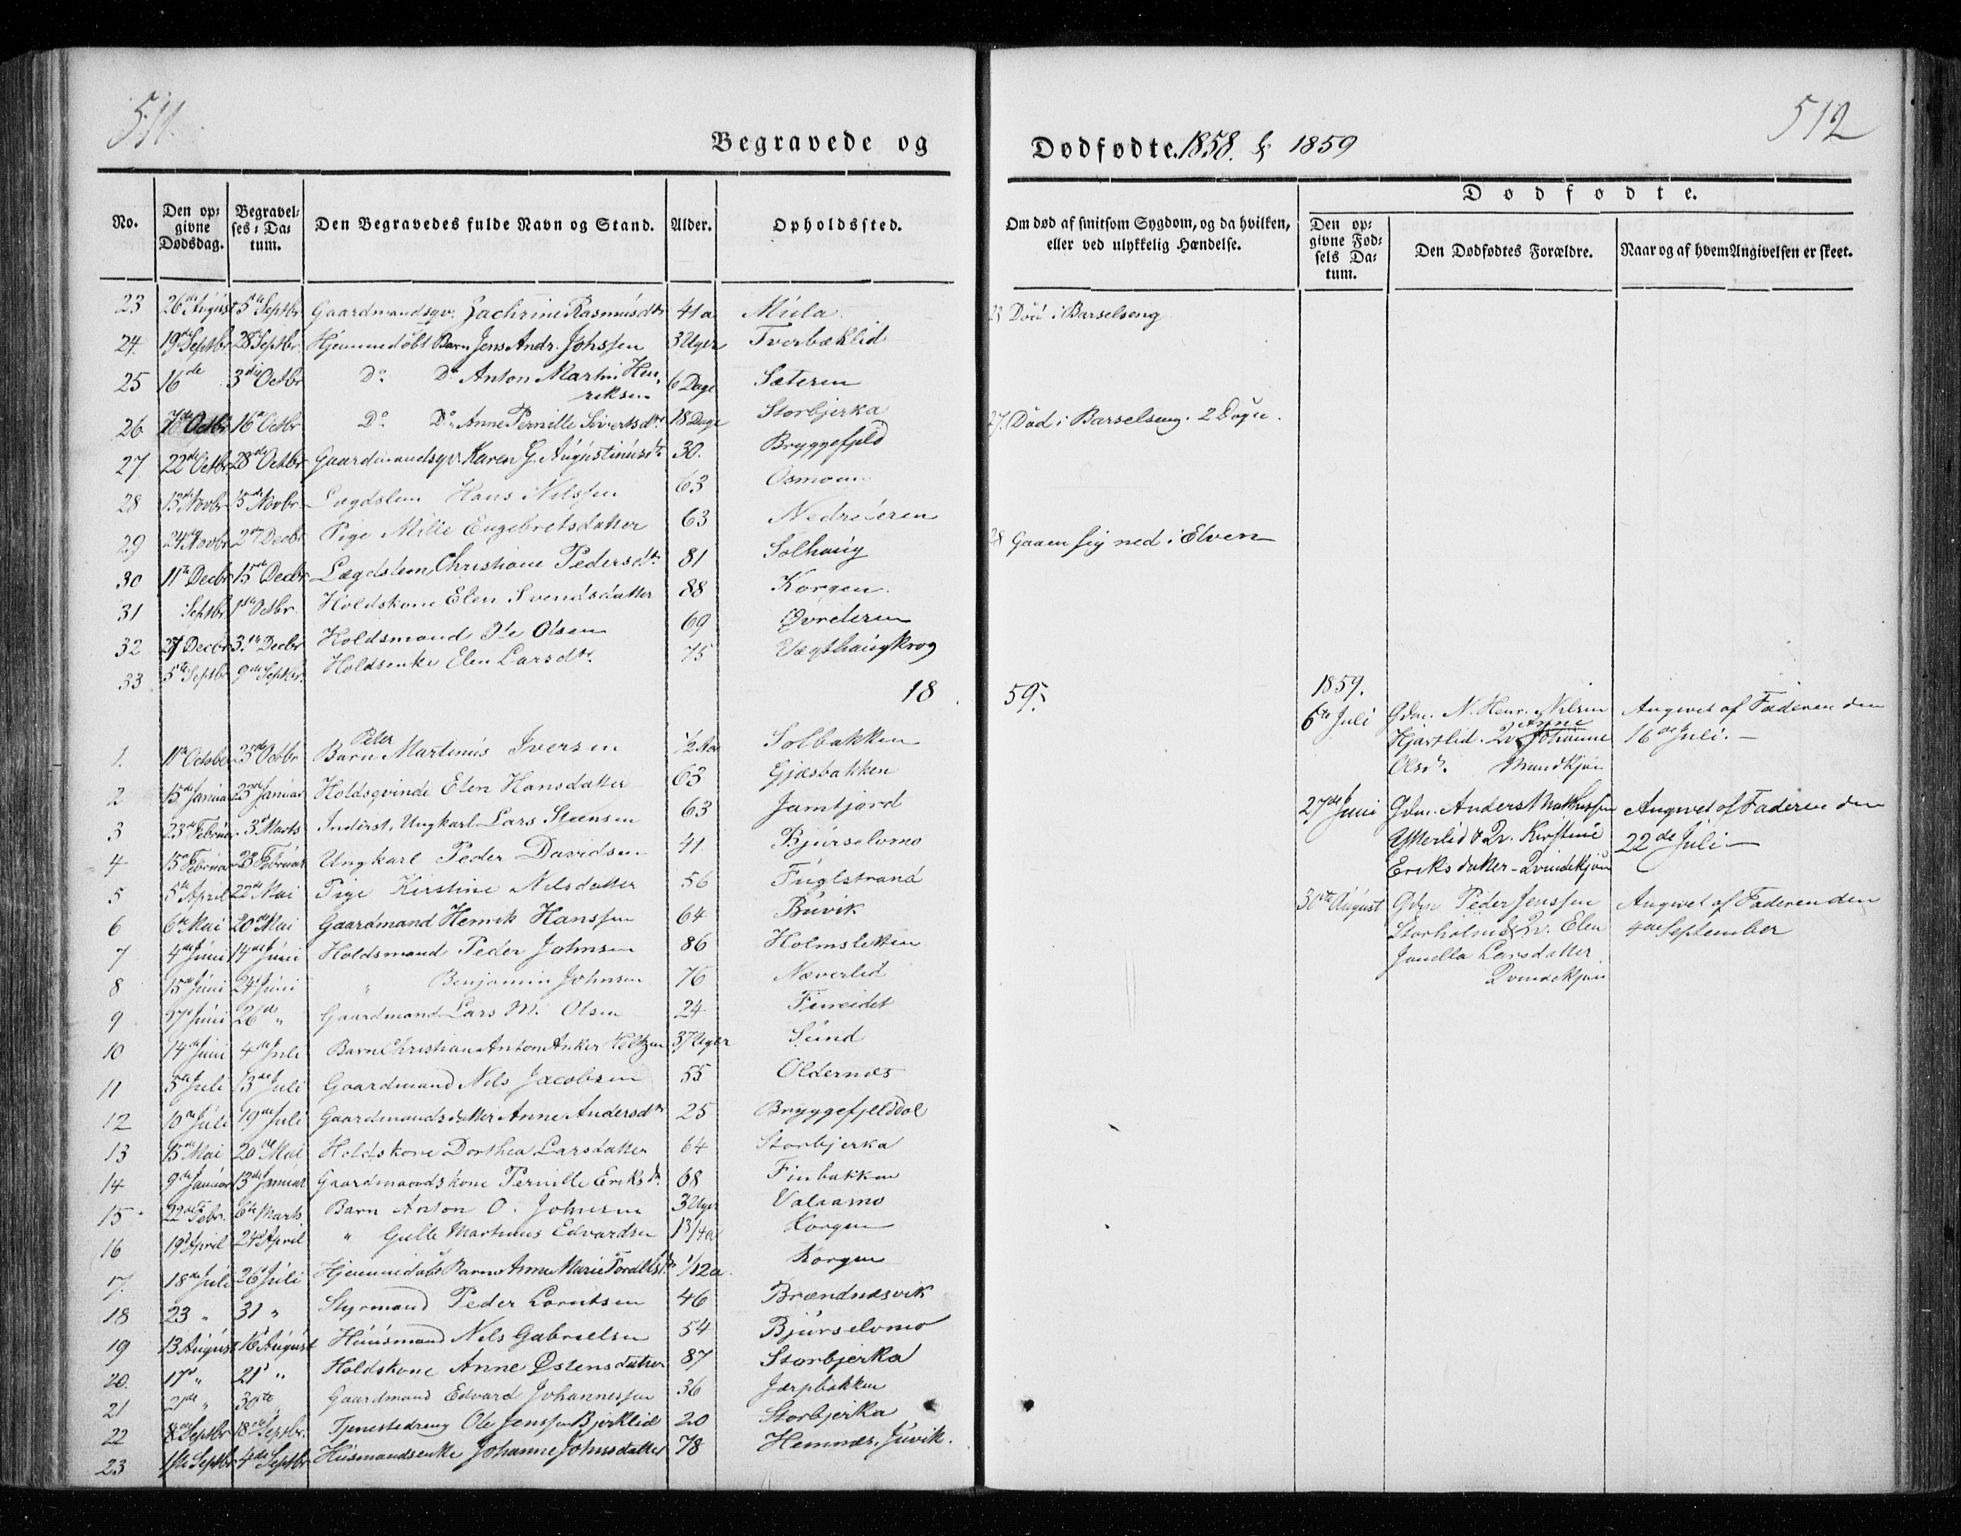 511.
Begravede og
No. | Den opgivne Dødsdag. | Begravelses-Datum. | Den Begravedes fulde Navn og Stand. | Alder. | Opholdssted.
23 26de August 5te Septbr Gaardmandsqv. Zachrine Rasmusdtr 41a Mula
24. 19de Septbr 28 Septbr Hjemmedøbt Barn Jens Andr. Johssen 3 Uger Tverbæklid
25 16de 3die Octbr Do. Do. Anton Martin Hen-
riksen 6 Dage Sæteren
26 Octbr 16de Octbr Do. Do. Anne Pernille Sivertsdtr 18 Dage Storbjerka
27 22de Octbr 28de Octbr Gaardmandsqv. Karen G. Augustinusdtr 30. Bryggefjeld
28 13de Novbr 15de Novbr Lægdslem Hans Nilssen 63 Osmoen
29 24de Novbr 27 Decbr Pige Mille Engebretsdatter 63 Nedreleren
30 11te Decbr 15de Decbr Lægdslem Christiane Pedersdtr 81 Solhaug
31 Septbr 1ste Octbr. Holdskone Elen Svendsdatter 88 Korgen.
32 27 Decbr 31te Decbr Holdsmand Ole Olsen 69 Øvreleren
33 5te Septbr 9de Septbr. Holdsenke Elen Larsdtr. 75 Vægthaugkrog
18
1. 11te October 23de Octbr Barn Peter Martinus Iversen 1/2 Aar Solbakken
2 15de Januar 23de Januar Holdsqvinde Elen Hansdatter 63 Gjæsbakken
3 23de Februar 3die Marts Inderst, Ungkarl Lars Steensen 63 Jamtjord
4 15de Februar 23de Februar Ungkarl Peder Davidsen 41 Bjurselvmo
5 5te April 22de Mai Pige Kirstine Nilsdatter 56 Fuglstrand
6 6te Mai 20de Mai Gaardmand Henrik Hanssen 64 Buvik
7 4de Juni 14de Juni Holdsmand Peder Johnsen 86 Holmsletten
8 15de Juni 24 Juni " Benjamin Johnsen 76 Næverlid
9 27 Juni 26de " Gaardmand Lars M. Olsen 24 Finneidet
10 14de Juni 4de Juli Barn Christian Anton Anker Veltzen 37 Uger Sund
11 5te Juli 13de Juli Gaardmand Nils Jacobsen 55 Oldernæs
12 10de Juli 19de Juli Gaardmandsdatter Anne Andersdtr 25 Bryggefjelddal
13 15de Mai 20de Mai Holdskone Dorthea Larsdatter 64 Storbjerka
14 9de Januar 13de Januar Gaardmandskone Pernille Eriksdtr. 68 Finbakken
15 22de Febr. 6te Marts Barn Anton O. Johnsen 3 Uger Valaamo
16 19de April 24de April " Gulle Martinus Edvardsen 1 3/4 a Korgen
17. 18de Juli 26de Juli Hjemmedøbt Barn Anne Marie Toraldsdtr 1/12 a. Korgen
18 23 " 31 " Styrmand Peder Lorntsen 46 Brændnæsvik
19 13 August 16 August Huusmand Nils Gabrielsen 54 Bjurselvmo
20. 17de " 21 " Holdskone Anne Østensdatter 87 Storbjerka
21 21de " 30te " Gaardmand Edvard Johannessen 36 Jærpbakken
22 8de Septbr 18de Septbr. Tjenestedreng Ole Jenssen Bjerklid 20 Storbjerka
23 1ste Septbr 4de Septbr Husmandsenke Johanne Johnsdatter 78 Hemnæs, Juvik.
512
Dødfødte. 1858. & 1859
Om død af smitsom Sygdom, og da hvilken, eller ved ulykkelig Hændelse.
Dødfødte.
Den opgivne Fødsels Datum. | Den Dødfødtes Forældre. | Naar og af hvem Angivelsen er skeet.
23 Død i Barselseng
27. Død i Barselseng. 2 Døgn.
28 Gaaen sig ned i Elven
59.
1859.
6te Juli Gdm. N. Henr. Nilsen Angivet af Faderen den
Anne
Hjartlid. Qv. Johanne 16de Juli. —
Olsdtr. Mandkjøn
27de Juni Gdm. Anders Mathissen Angivet af Faderen den
Ytterlid & Qv. Kirstine 22de Juli —
Eriksdatter - Qvindekjøn
30te August Gdm Peder Jenssen Angivet af Faderen den
Storholmd Qv. Elen 4de September
Janella Larsdatter.
Qvindekjøn